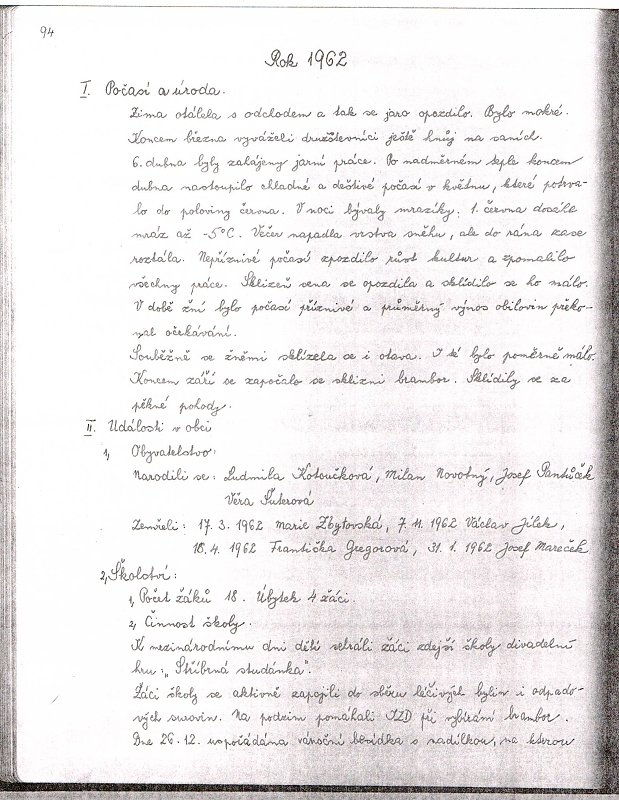 94
Rok 1962
I. Počasí a úroda.
Zima otálela s odchodem a tak se jaro opozdilo. Bylo mokré.
Koncem března vyváželi družstevníci ještě hnůj na saních.
6. dubna byly zahájeny jarní práce. Po nadměrném teple koncem
dubna nastoupilo chladné a deštivé počasí v květnu, které potrva-
lo do poloviny června. V noci bývaly mrazíky. 1. června dosáhl
mráz až -5°C. Večer napadla vrstva sněhu, ale do rána zase
roztála. Nepříznivé počasí zpozdilo růst kultur a zpomalilo
všechny práce. Sklizeň sena se opozdila a sklidilo se ho málo.
V době žní bylo počasí příznivé a průměrný výnos obilovin překo-
nal očekávání.
Souběžně se žněmi sklízela se i otava. I té bylo poměrně málo.
Koncem září se započalo se sklizní brambor. Sklidily se za
pěkné pohody.
II. Události v obci
1, Obyvatelstvo:
Narodili se: Ludmila Kotoučková, Milan Novotný, Josef Pantůček
Věra Šuterová
Zemřeli: 17. 3. 1962 Marie Zbytovská, 7. 11. 1962 Václav Jílek,
18. 4. 1962 Františka Gregorová, 31. 1. 1962 Josef Mareček
2, Školství:
1, Počet žáků 18. Úbytek 4 žáci.
2, Činnost školy.
K mezinárodnímu dni dětí sehráli žáci zdejší školy divadelní
hru: „Stříbrná studánka".
Žáci školy se aktivně zapojili do sběru léčivých bylin i odpado-
vých surovin. Na podzim pomáhali JZD při vybírání brambor.
Dne 26. 12. uspořádána vánoční besídka s nadílkou, na kterou